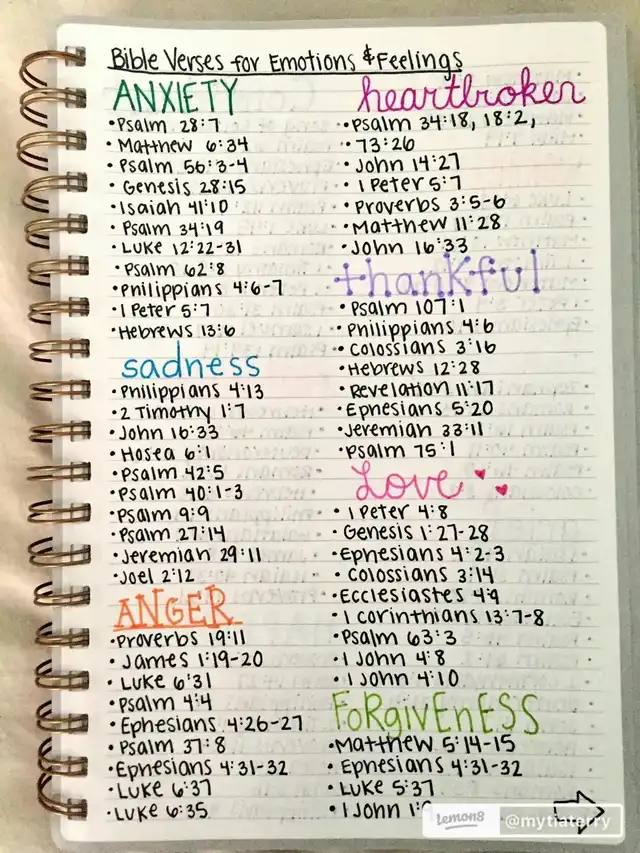 Bible Verses for Emotions & Feelings
ANXIETY
• Psalm 28:7
• Matthew 6:34
• Psalm 56:3-4
• Genesis 28:15
• Isaiah 41:10
• Psalm 34:19
• Luke 12:22-31
• Psalm 62:8
• Philippians 4:6-7
• 1 Peter 5:7
• Hebrews 13:6
sadness
• Philippians 4:13
• 2 Timothy 1:7
• John 16:33
• Hosea 6:1
• Psalm 42:5
• Psalm 40:1-3
• Psalm 9:9
• Psalm 27:14
• Jeremiah 29:11
• Joel 2:12
ANGER
• Proverbs 19:11
• James 1:19-20
• Luke 6:31
• Psalm 4:4
• Ephesians 4:26-27
• Psalm 37:8
• Ephesians 4:31-32
• Luke 6:37
• Luke 6:35
heartbroken
• Psalm 34:18, 18:2,
• 73:26
• John 14:27
• 1 Peter 5:7
• Proverbs 3:5-6
• Matthew 11:28
• John 16:33
thankful
• Psalm 107:1
• Philippians 4:6
• Colossians 3:16
• Hebrews 12:28
• Revelation 11:17
• Ephesians 5:20
• Jeremiah 33:11
• Psalm 75:1
Love
• 1 Peter 4:8
• Genesis 1:27-28
• Ephesians 4:2-3
• Colossians 3:14
• Ecclesiastes 4:9
• 1 Corinthians 13:7-8
• Psalm 63:3
• 1 John 4:8
• 1 John 4:10
FoRgivEnESS
• Matthew 5:14-15
• Ephesians 4:31-32
• Luke 5:37
• 1 John
lemon8 @mytiaterry